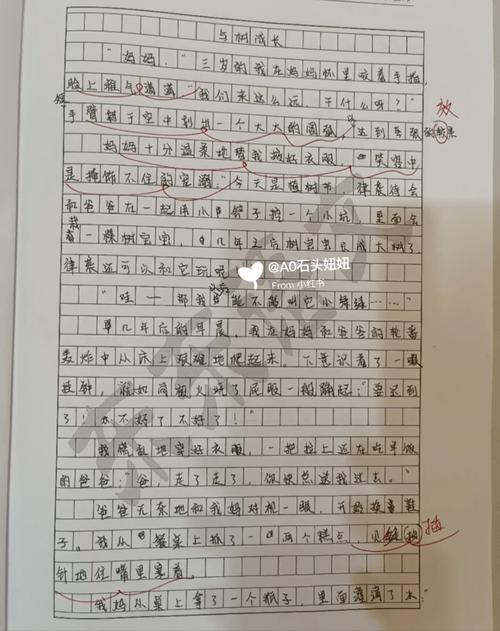 与树成长
"妈妈，"三岁的我在妈妈怀里咬着手指，
脸上难
我们来这么远，干什么呀？"
手臂
于空中划出一个大大的圆弧，达到夸张的
放
妈妈十分温柔地替我
好衣服，笑容中
是掩饰不住的宠溺："今天是植树节，律
待会
和爸爸在一起用小
子挖一个小坑，里面会
栽着一棵树宝宝，
几年之后树宝宝长成大树了，
律
还可以和它玩呢
@AO石头妞妞
From 小红书
"哇——那我
能不能叫它小
……"
早几年后的早晨，我在妈妈和爸爸的轮番
轰炸中从床上艰难地爬起来。下意识看了一眼
，
如同被火烧了屁股一般蹦起："要迟到
了！
不好了不好了！"
我慌乱地穿好衣服，一把拉上还在吃早饭
的爸爸："爸，走了走了，你快点送我过去。"
爸爸无奈地和我妈对视一眼，开始换着鞋
子。我从餐桌上抓了一两个糕点，见缝
插
针地往嘴里塞着。
我妈从桌上拿了一个瓶子，里面灌满了水：